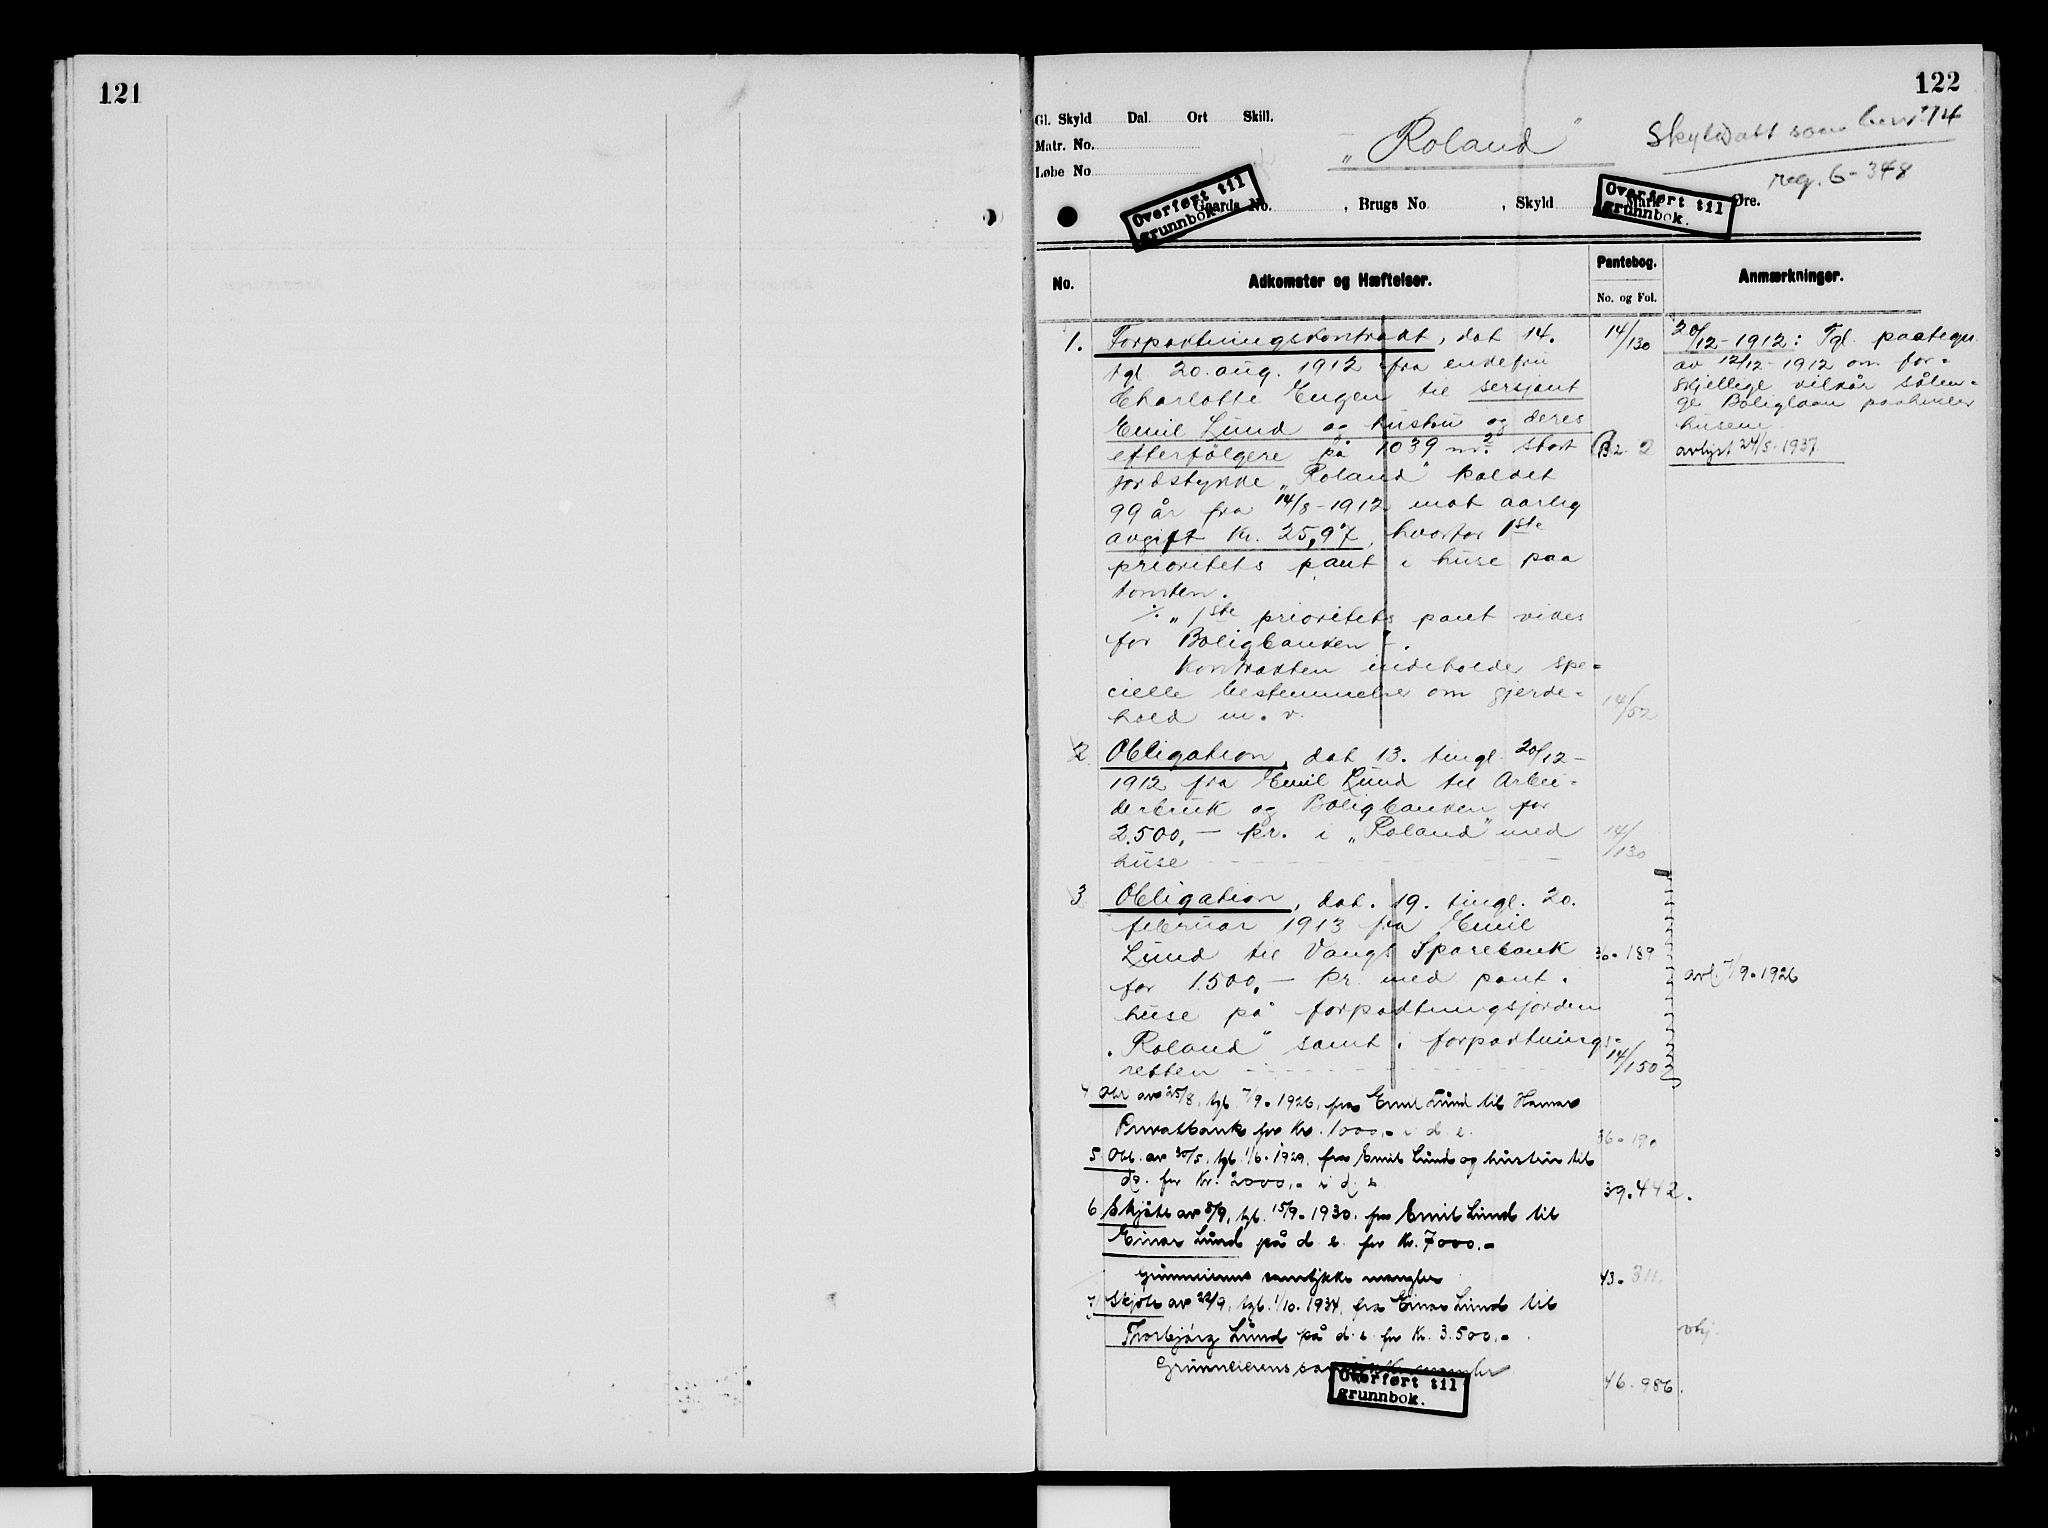 121
122
Gl. Skyld Dal. Ort Skill.
Matr. No.
Løbe No
„Roland"
Skyldsatt som br.nr 74
reg. 6-348
Overført til
grunnbok.
Gaards No. , Brugs No. , Skyld Mark Øre.
Overført til
grunnbok.
No. Adkomster og Hæftelser. Pantebog. No. og Fol. Anmærkninger.
1. Forpaktningskontrakt, dat 14.
tgl 20. aug. 1912 fra enkefru
Charlotte Engen til sersjant
Emil Lund og hustru og deres
efterfölgere på 1039 m². stort
jordstykke „Roland" kaldet
99 år fra 14/8-1912 mot aarlig
avgift Kr. 25,97, hvorfor 1ste
prioritets pant i huse paa
tomten.
%. „1ste prioritets pant vikes
for Boligbanken".
Kontrakten indeholder spe=
cielle bestemmelser om gjerde=
hold m. v.
14/130
B 2. 2
14/52
20/12-1912: Tgl. paategn.
av 12/12-1912 om for=
skjellige vilkår sålen=
ge Boliglaan paahviler
husene.
avlyst 24/5-1937
2 Obligation, dat 13. tingl. 20/12-
1912 fra Emil Lund til Arbei=
derbruk og Boligbanken for
2.500,- kr. i „Roland" med
huse
14/130
3 Obligation, dat. 19. tingl. 20.
februar 1913 fra Emil
Lund til Vangs Sparebank
for 1.500,- kr. med pant i
huse på forpaktningsjorden
„Roland" samt i forpaktnings=
retten
36-189
14/150
avl. 7/9-1926
4 Obl av 25/8, tgl. 7/9-1926, fra Emil Lund til Hamar
Privatbank for kr. 1000,- i d. e.
36-190
5 Obl. av 30/5, tgl. 1/6-1929, fra Emil Lund og hustru til
do. for Kr. 2000,- i d. e.
39.442.
6 Skjöte av 8/9, tgl. 15/9-1930. fra Emil Lund til
Einar Lund på d. e. for kr. 7000.-
Grunneierens samtykke mangler
43. 311.
7/ Skjöte av 22/9, tgl. 1/10-1934, fra Einar Lund til
Thorbjörg Lund på d. e. for Kr. 3.500,-
Grunneierens samtykke mangler
46. 986.
Overført til
grunnbok.